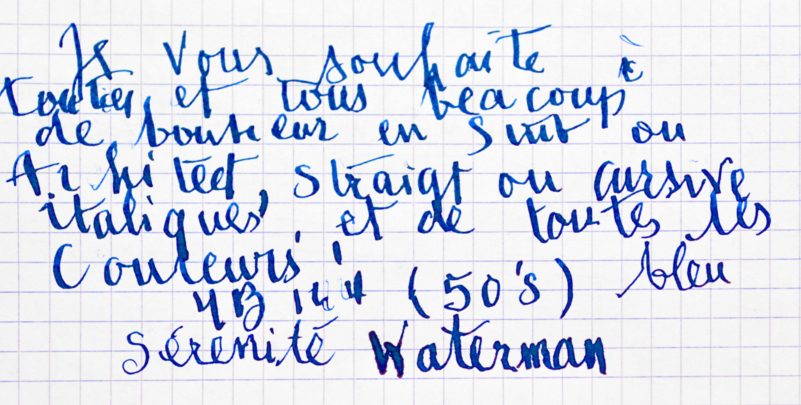 Je vous souhaite à
toutes et tous beaucoup
de bonheur en Stub ou
Architect, Straigt ou cursive
italiques, et de toutes les
Couleurs !
MB 144 (50's) bleu
Sérénité Waterman